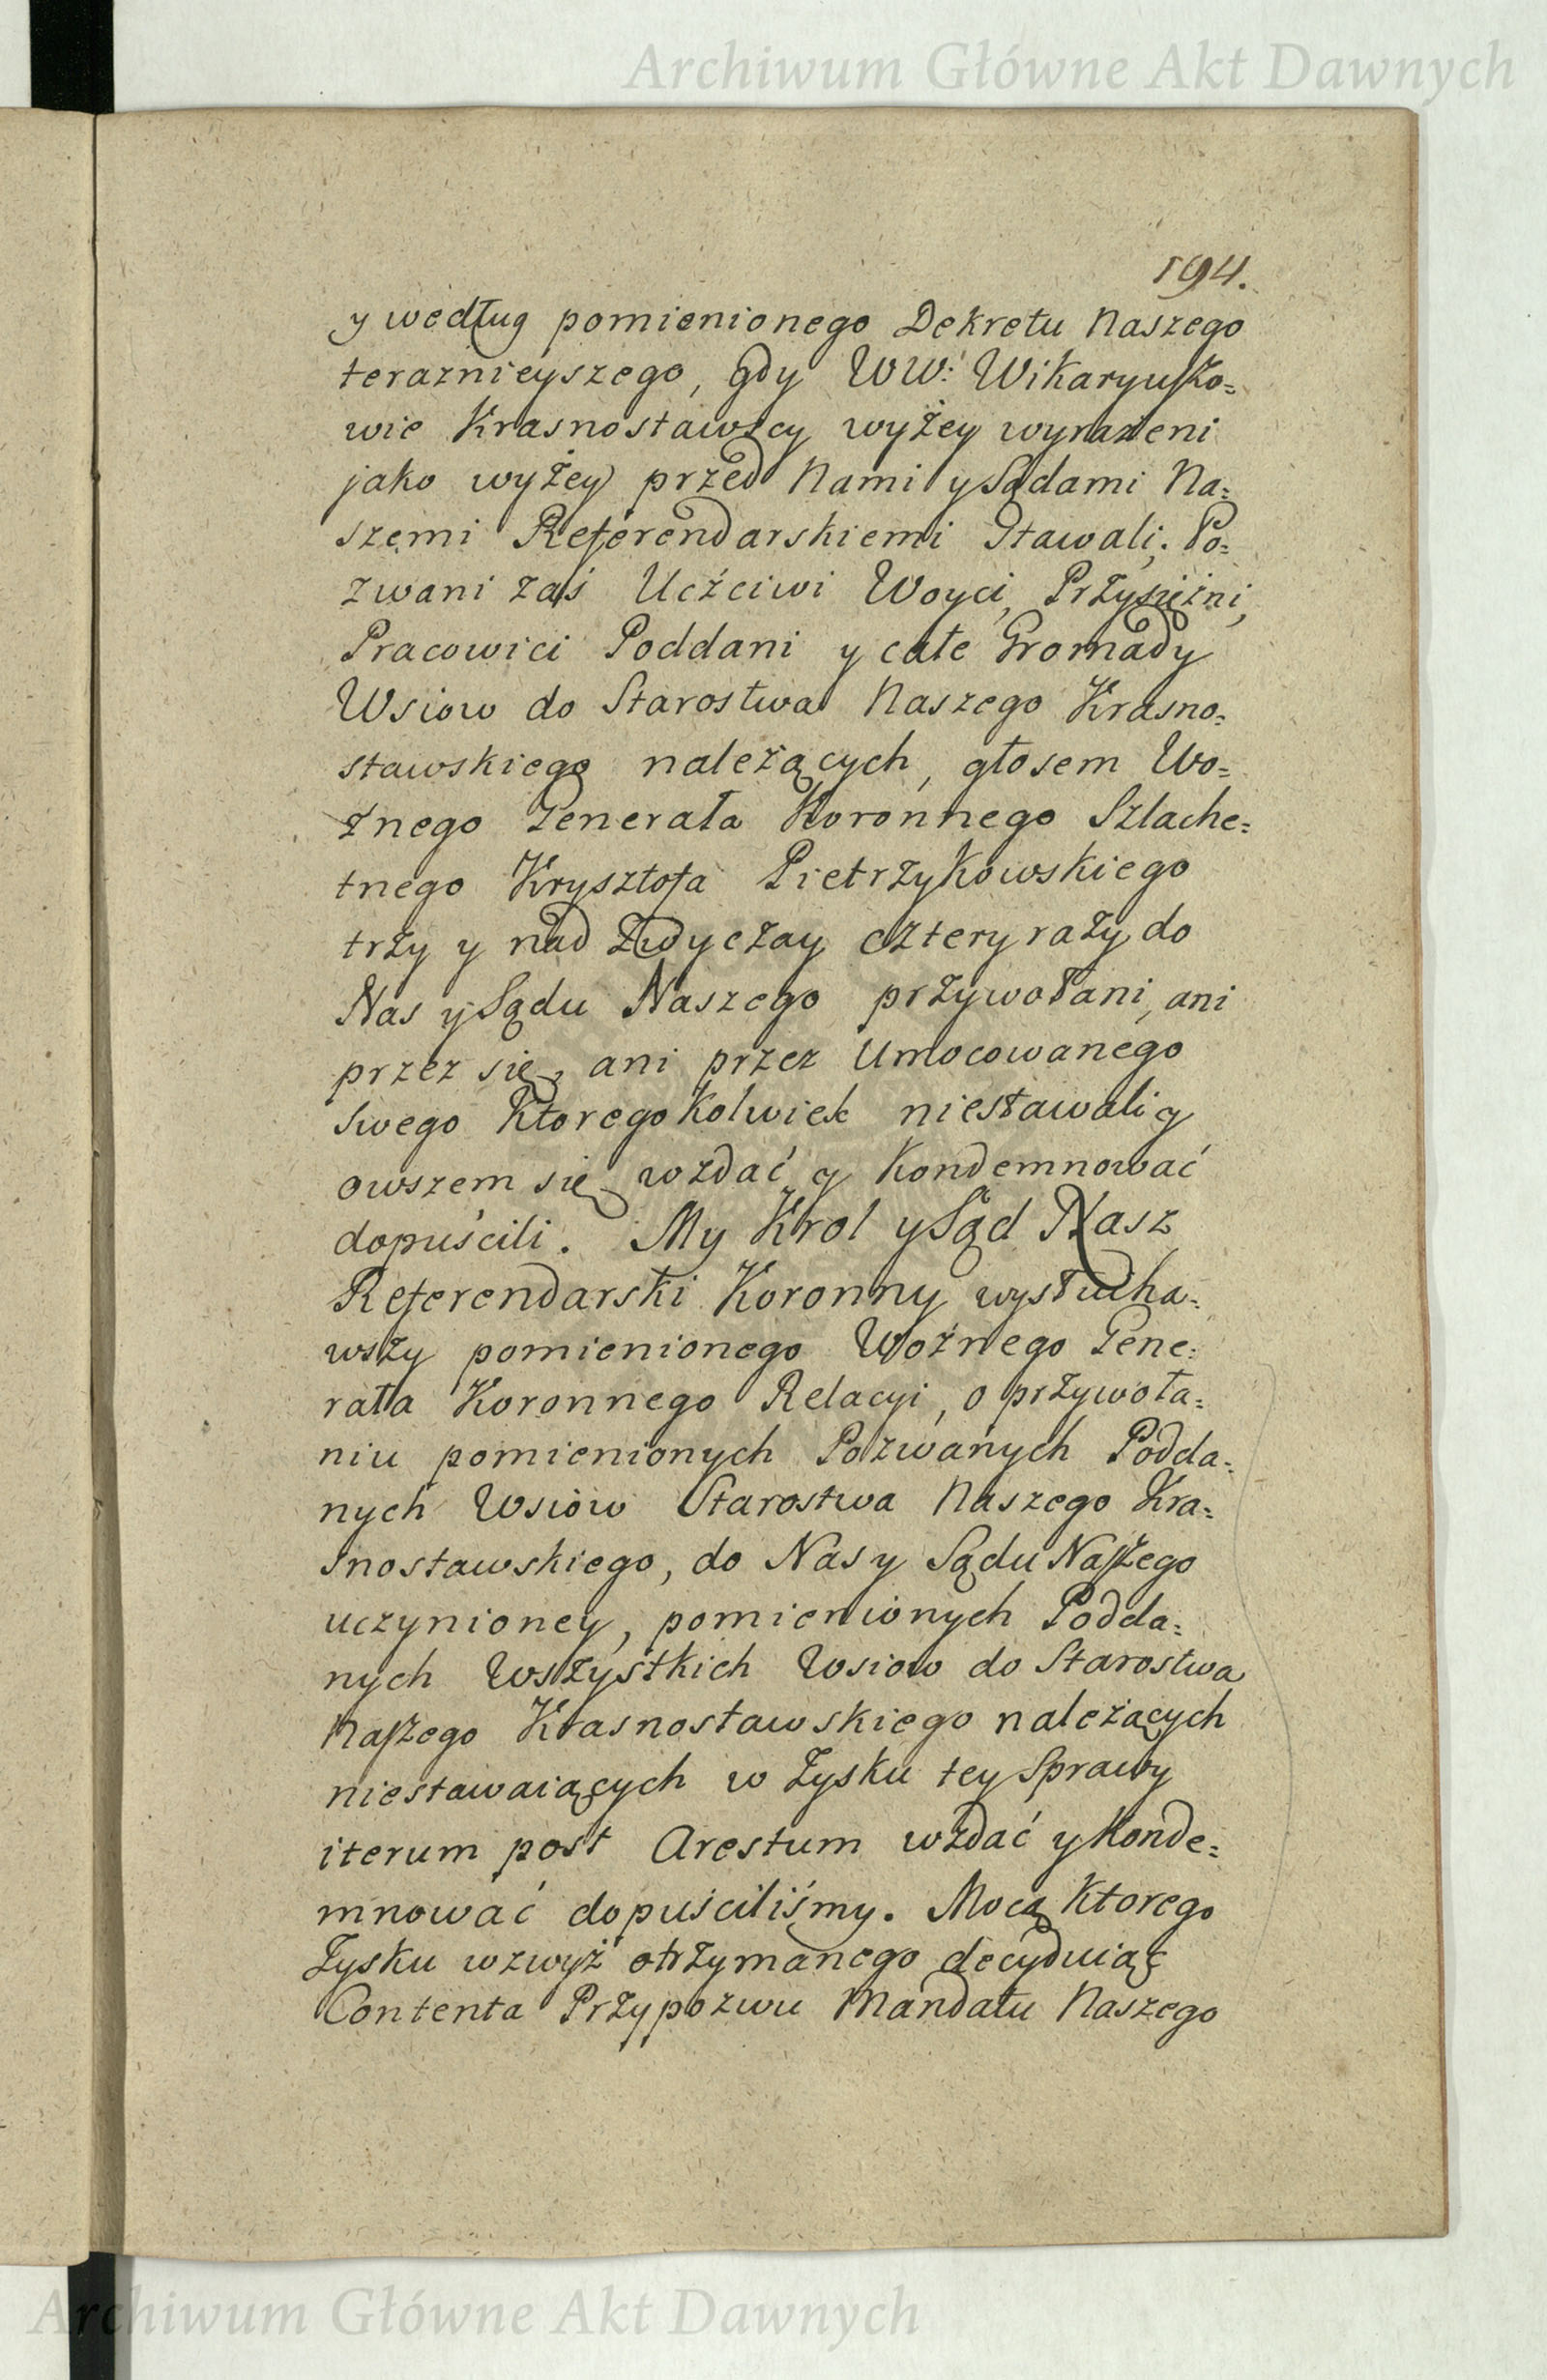 Archiwum Główne Akt Dawnych
194.
y według pomienionego Dekretu Naszego
teraznieyszego, gdy WW: Wikaryuszo=
wie Krasnostawscy wyżey wyrazeni
jako wyżey przed Nami y Sądami Na=
szemi Referendarskiemi Stawali; Po=
zwani zaś Uczciwi Woyci, Przysiężni,
Pracowici Poddani y całe Gromady
Wsiow do Starostwa Naszego Krasno=
stawskiego należących, głosem Wo=
źnego Jenerała Koronnego Szlache=
tnego Krysztofa Pietrzykowskiego
trzy y nad zwyczay cztery razy do
Nas y Sądu Naszego przywołani, ani
przez się, ani przez Umocowanego
swego ktoregokolwiek niestawali y
owszem się wzdać y Kondemnować
dopuścili. My Krol y Sąd Nasz
Referendarski Koronny wysłucha=
wszy pomienionego Woźnego Jene=
rała Koronnego Relacyi, o przywoła=
niu pomienionych Pozwanych Podda=
nych Wsiow Starostwa Naszego Kra=
snostawskiego, do Nas y Sądu Naszego
uczynioney, pomienionych Podda=
nych Wszystkich Wsiow do Starostwa
Naszego Krasnostawskiego należących
niestawaiących w Zysku tey Sprawy
iterum post Arestum wzdać y Konde=
mnować dopuściliśmy. Mocą Ktorego
Zysku wzwyż otrzymanego decyduiąc
Contenta Przypozwu Mandatu Naszego
Archiwum Główne Akt Dawnych